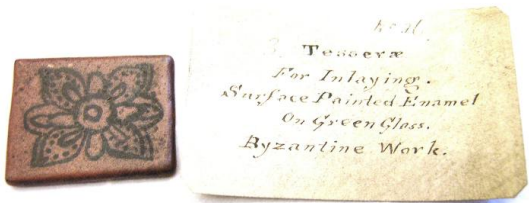 Tesseræ
For Inlaying.
Surface Painted Enamel
On Green Glass.
Byzantine Work.